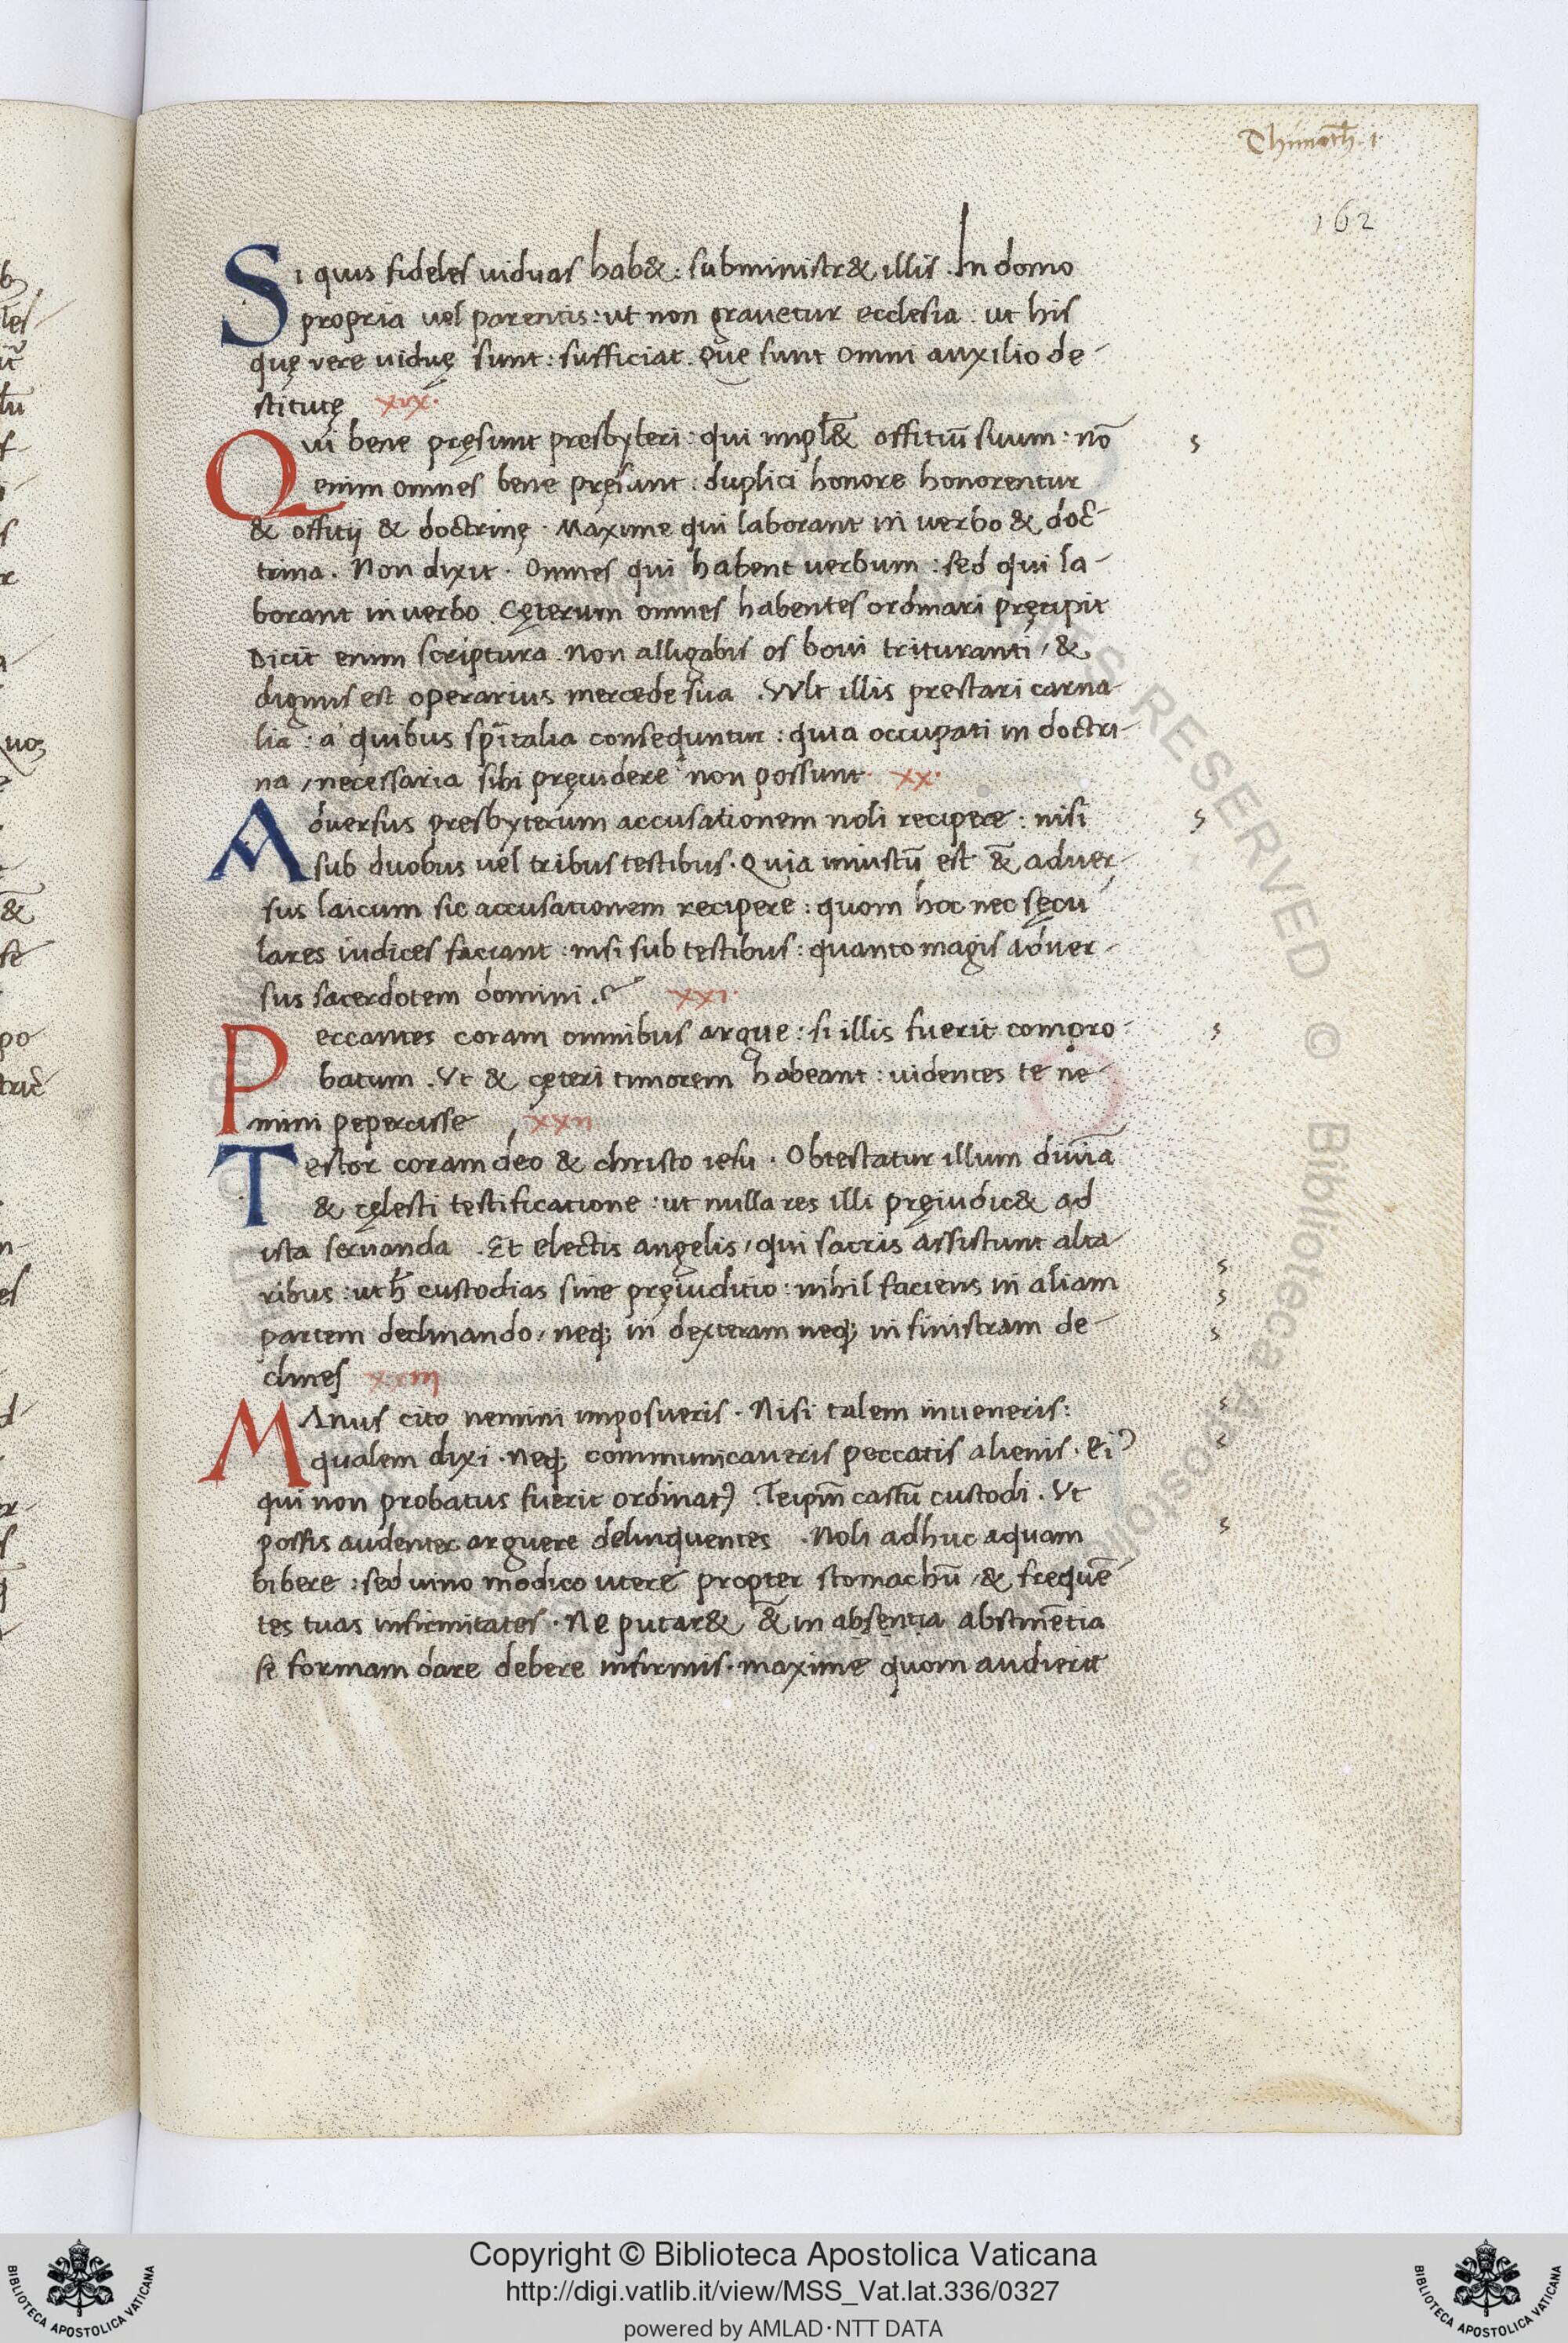 Thimoth̄. 1.
162
Si quis fideles uiduas hab&: subministr& illis. In domo
propria uel parentis: ut non grauetur ecclesia. ut his
quę vere uiduę sunt: sufficiat. Que sunt omni auxilio de-
stitutę xix.
Qui bene pręsunt presbyteri: qui impl& offitiū suum: nō
enim omnes bene pręsunt: duplici honore honorentur
& offitij & doctrinę. Maxime qui laborant in verbo & doc-
trina. Non dixit. Omnes qui habent verbum: sed qui la-
borant in verbo. Cęterum omnes habentes ordinari pręcipit
Dicit enim scriptura. Non alligabis os boui trituranti, &
dignus est operarius mercede sua. Vult illis prestari carna-
lia: a quibus spīritalia consequntur: quia occupati in doctri-
na, necessaria sibi pręuidere non possunt. xx.
Aduersus presbyterum accusationem noli recipere: nisi
sub duobus uel tribus testibus. Quia iniustū est &̄ aduer-
sus laicum sic accusationem recipere: quom hoc nec sęcu
lares iudices faciant: nisi sub testibus: quanto magis aduer-
sus sacerdotem domini.? xxi.
Peccantes coram omnibus argue: si illis fuerit compro-
batum. Vt & cęteri timorem habeant: uidentes te ne-
mini pepercisse xxii
Testor coram deo & christo iesu. Obtestatur illum diuīa
& cęlesti testificatione: ut nulla res illi pręiudic& ad
ista seruanda. Et electis angelis, qui sacris assistunt alta-
ribus: ut h̄ custodias sine pręiuditio: nihil faciens in aliam
partem declinando, neq; in dexteram neq; in sinistram de-
clines xxiii
MAnus cito nemini imposueris. Nisi talem inueneris:
qualem dixi. neq; communicaueris peccatis alienis. Eiꝰ
qui non probatus fuerit ordinat). Teipm̄ castū custodi. Vt
possis audenter arguere delinquentes. Noli adhuc aquam
bibere: sed uino modico utere propter stomachū, & frequē-
tes tuas infirmitates. Ne putar& &̄ in absentia abstinētia
se formam dare debere infirmis. maxime quom audierit
Copyright © Biblioteca Apostolica Vaticana
http://digi.vatlib.it/view/MSS_Vat.lat.336/0327
powered by AMLAD·NTT DATA